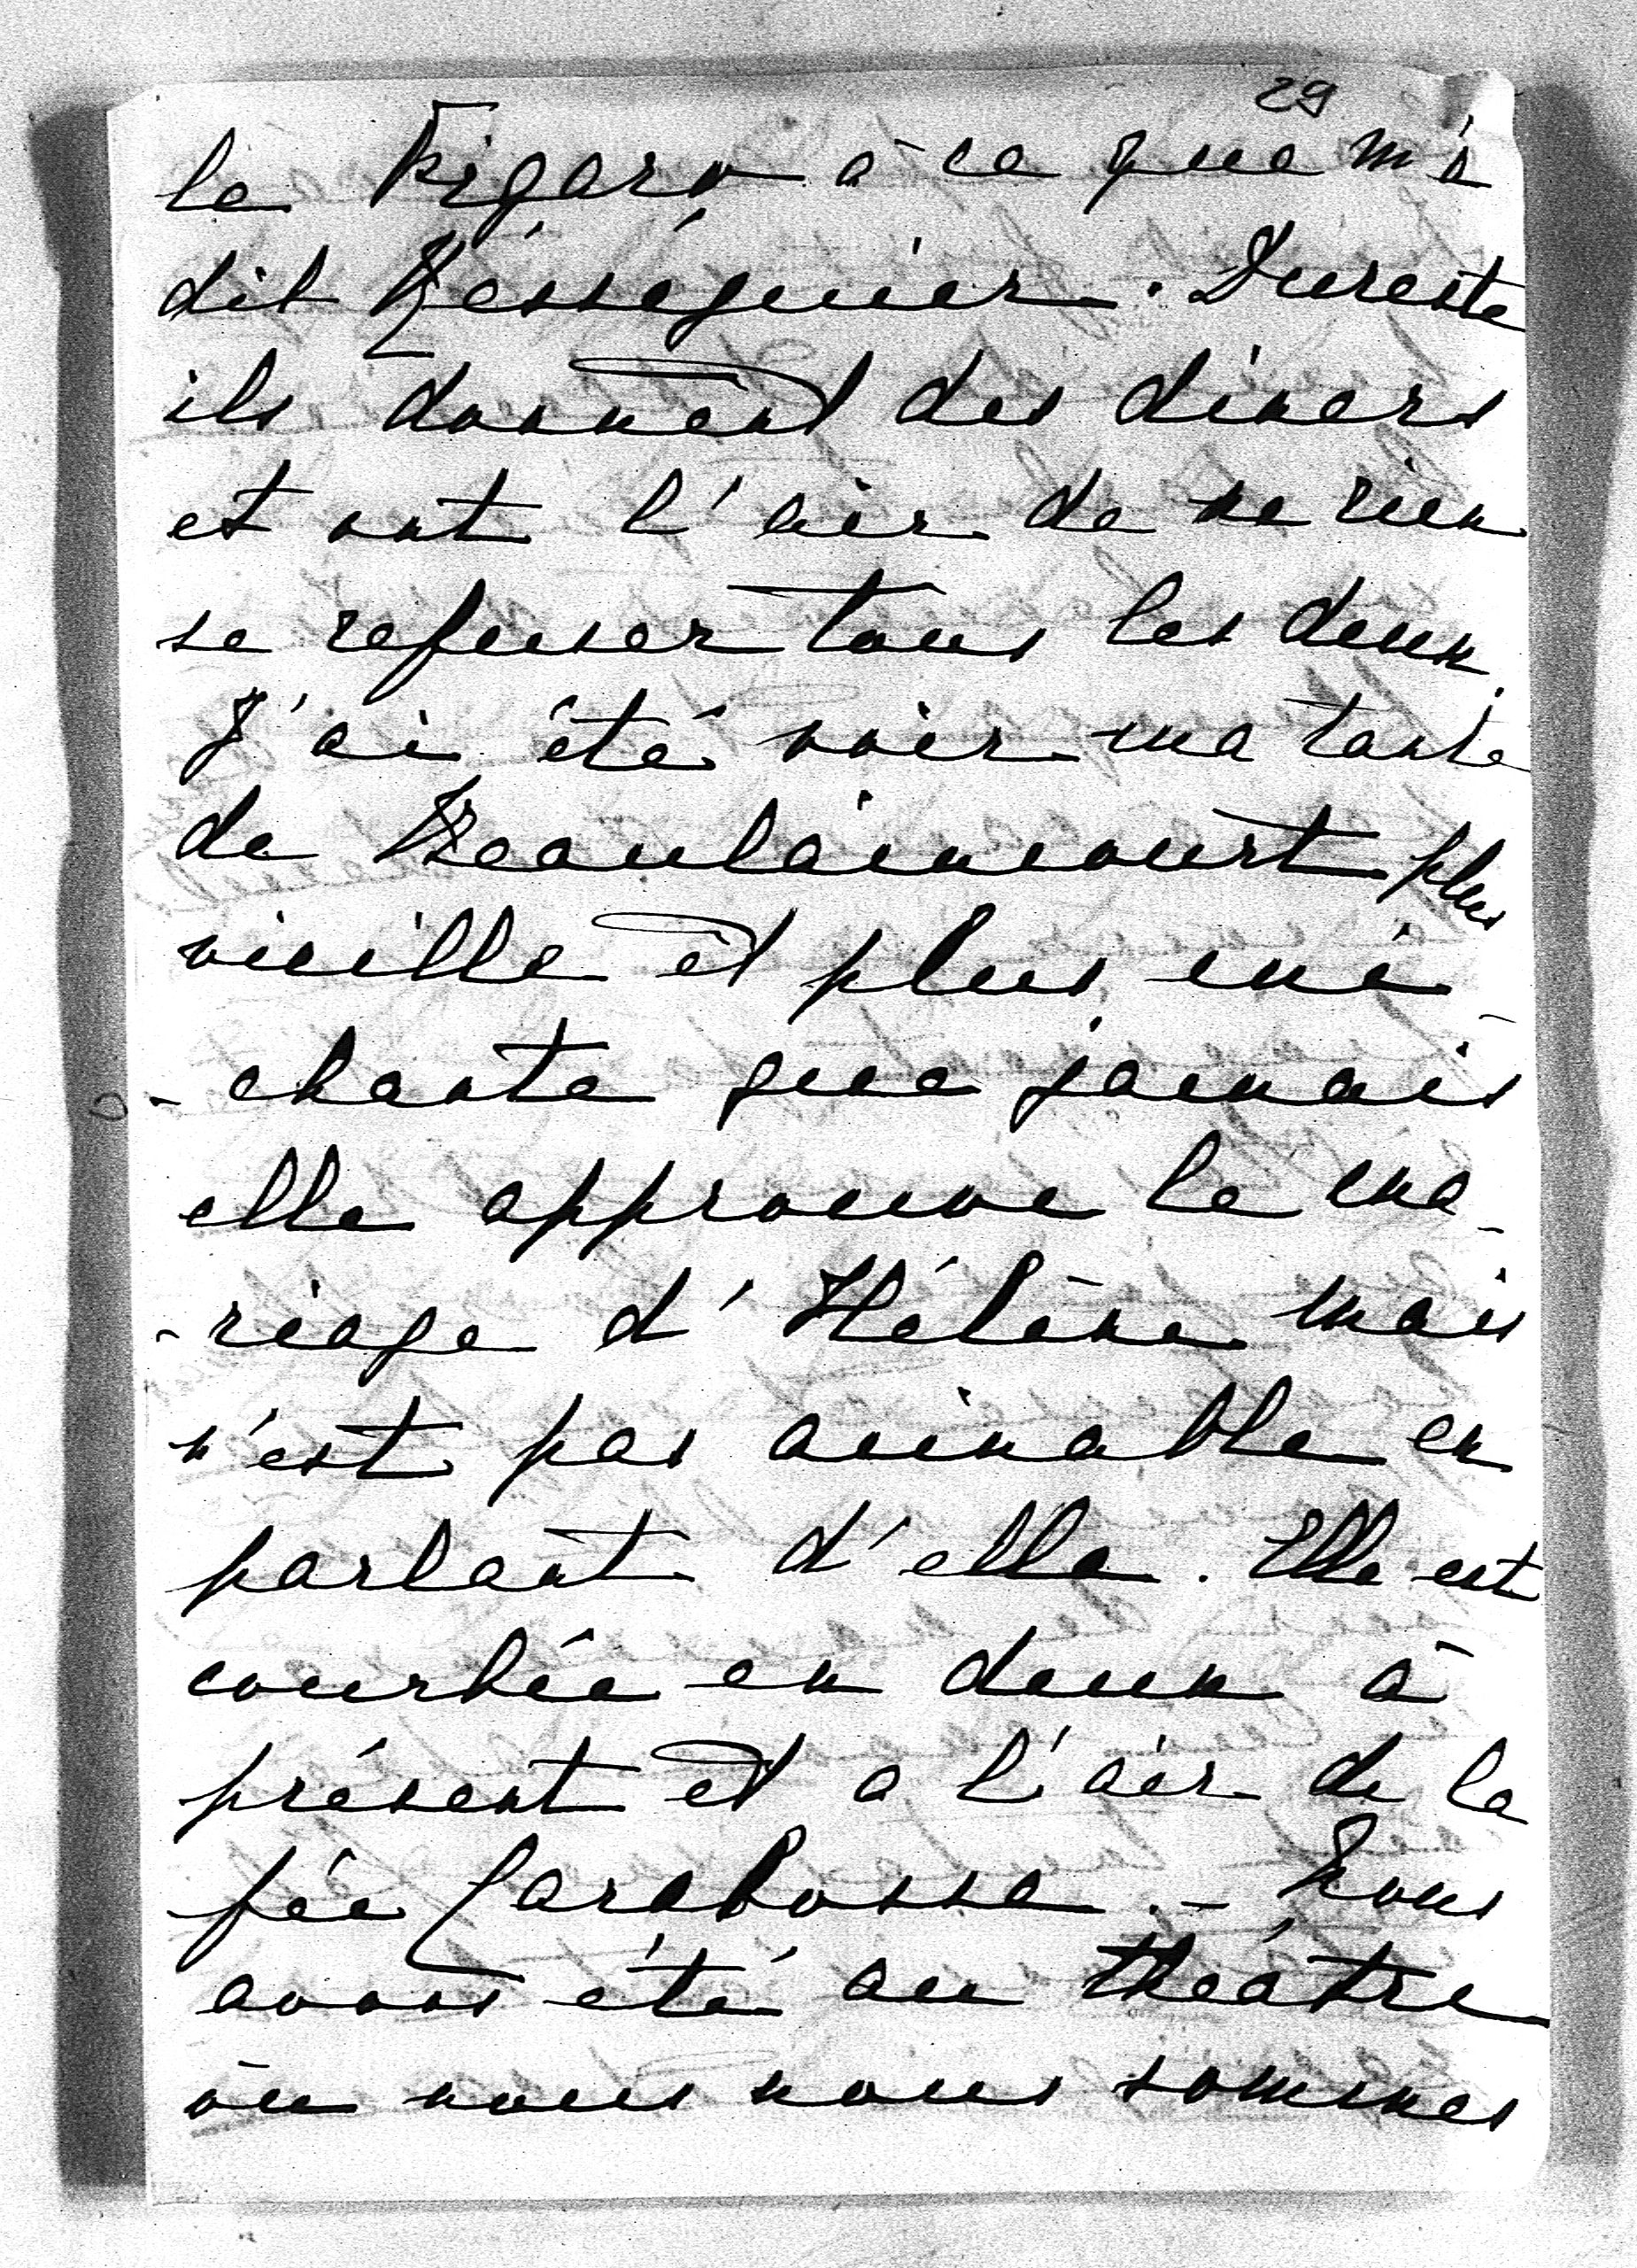 29
le Figaro à ce que m'a
dit Rességuier. Dureste
ils donnent des diners
et ont l'air de ne rien
se refuser tous les deux.
J'ai été voir ma tante
de Beaulaincourt plus
vieille et plus mé-
-chante que jamais
elle approuve le ma-
-riage d'Hélène mais
n'est pas aimable en
parlant d'elle. Elle est
courbée en deux à
présent et a l'air de la
fée Carabosse. - Nous
avons été au théâtre
où nous nous sommes